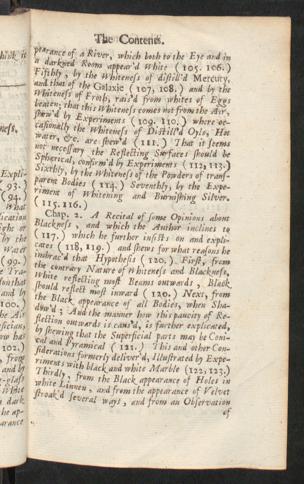 The Contents.
pearance of a River, which both to the Eye and in
a darkened Room appear'd White (105. 106.)
Fifthly, by the Whiteness of distill'd Mercury,
and that of the Galaxie (107, 108.) and by the
Whiteness of Froth, rais'd from whites of Eggs
beaten; that this Whiteness comes not from the Air,
shew'd by Experiments (109. 110.) where oc-
casionally the Whiteness of Distill'd Oyls, Hot
water, &c. are shew'd (111.) That it seems
not necessary the Reflecting Surfaces should be
Spherical, confirm'd by Experiments (112, 113.)
Sixthly, by the Whiteness of the Powders of trans-
parent Bodies (114.) Seventhly, by the Expe-
riment of Whitening and Burnishing Silver.
(115. 116.)
Chap. 2. A Recital of some Opinions about
Blackness, and which the Author inclines to
(117.) which he further insists on and expli-
cates (118, 119.) and shews for what reasons he
imbrac'd that Hypothesis (120.). First, from
the contrary Nature of Whiteness and Blackness,
White reflecting most Beams outwards, Black
should reflect most inward (120.) Next, from
the Black appearance of all Bodies, when Sha-
dow'd; And the manner how this paucity of Re-
flections outwards is caus'd, is further explicated,
by shewing that the Superficial parts may be Coni-
cal and Pyramical (121.) This and other Con-
siderations formerly deliver'd, Illustrated by Expe-
riments with black and white Marble (122, 123.)
Thirdly, from the Black appearance of Holes in
white Linnen, and from the appearance of Velvet
stroak'd several ways, and from an Observation
of